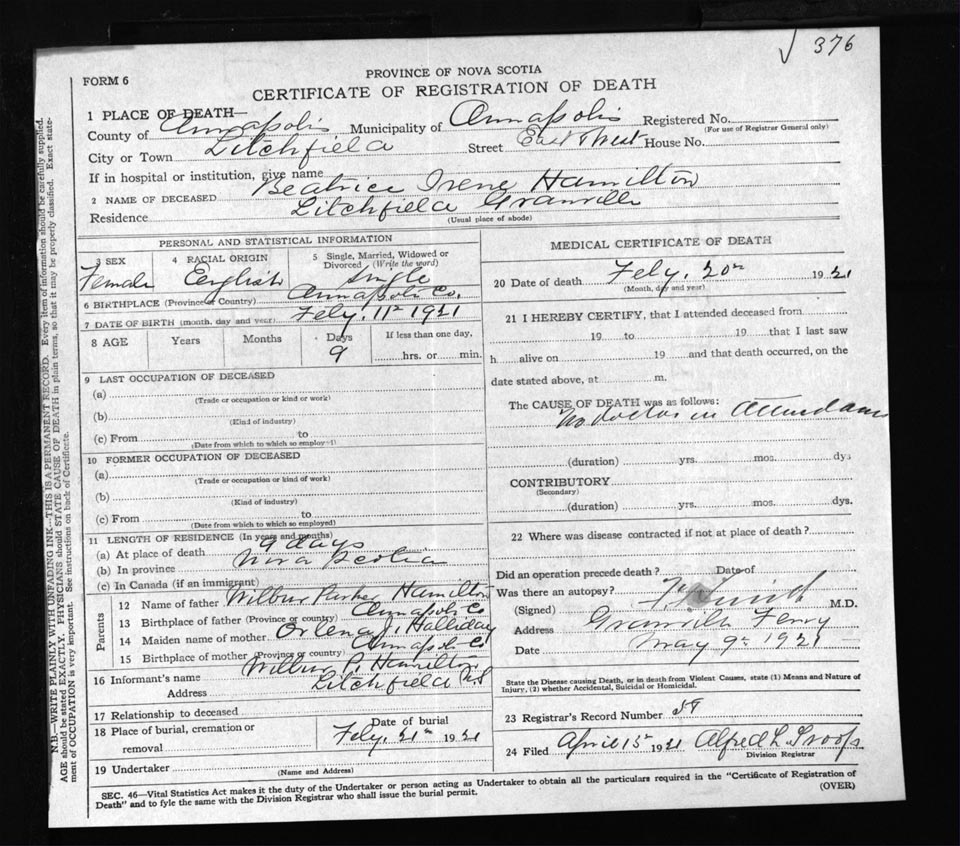 376
FORM 6
PROVINCE OF NOVA SCOTIA
CERTIFICATE OF REGISTRATION OF DEATH
1 PLACE OF DEATH—
County of Annapolis Municipality of Annapolis Registered No.
(For use of Registrar General only)
City or Town Litchfield Street East Street House No.
If in hospital or institution, give name
2 NAME OF DECEASED Beatrice Irene Hamilton
Residence Litchfield Granville
(Usual place of abode)
PERSONAL AND STATISTICAL INFORMATION
3 SEX Female
4 RACIAL ORIGIN English
5 Single, Married, Widowed or Divorced (Write the word) Single
6 BIRTHPLACE (Province or Country) Annapolis Co.
7 DATE OF BIRTH (month, day and year) Feby. 11th 1921
8 AGE Years Months Days 9 If less than one day, hrs. or min.
9 LAST OCCUPATION OF DECEASED
(a)
(Trade or occupation or kind or work)
(b)
(Kind of industry)
(c) From to
(Date from which to which so employed)
10 FORMER OCCUPATION OF DECEASED
(a)
(Trade or occupation or kind of work)
(b)
(Kind of industry)
(c) From to
(Date from which to which so employed)
11 LENGTH OF RESIDENCE (In years and months)
(a) At place of death 9 days
(b) In province Nova Scotia
(c) In Canada (if an immigrant)
Parents
12 Name of father Wilbur Parker Hamilton
13 Birthplace of father (Province or country) Annapolis Co
14 Maiden name of mother Orlena J. Halliday
15 Birthplace of mother (Province or country) Annapolis Co
16 Informant's name Wilbur P. Hamilton
Address Litchfield N.S
17 Relationship to deceased
18 Place of burial, cremation or removal
Date of burial
Feby. 21st 1921
19 Undertaker
(Name and Address)
MEDICAL CERTIFICATE OF DEATH
20 Date of death Feby. 20th 1921
(Month, day and year)
21 I HEREBY CERTIFY, that I attended deceased from
19 to 19 that I last saw
h alive on 19 and that death occurred, on the
date stated above, at m.
The CAUSE OF DEATH was as follows:
No doctor in attendance
(duration) yrs. mos. dys
CONTRIBUTORY
(Secondary)
(duration) yrs. mos. dys.
22 Where was disease contracted if not at place of death?
Did an operation precede death? Date of
Was there an autopsy?
(Signed) M.D.
Address Granville Ferry
Date May 9th 1921
State the Disease causing Death, or in death from Violent Causes, state (1) Means and Nature of
Injury, (2) whether Accidental, Suicidal or Homicidal.
23 Registrar's Record Number
24 Filed April 15th 1921 Alfred L. Troop
Division Registrar
SEC. 46—Vital Statistics Act makes it the duty of the Undertaker or person acting as Undertaker to obtain all the particulars required in the "Certificate of Registration of
Death" and to fyle the same with the Division Registrar who shall issue the burial permit.
(OVER)
N.B.—WRITE PLAINLY WITH UNFADING INK—THIS IS A PERMANENT RECORD. Every item of information should be carefully supplied.
AGE should be stated EXACTLY. PHYSICIANS should STATE CAUSE OF DEATH in plain terms, so that it may be properly classified. Exact state-
ment of OCCUPATION is very important. See instructions on back of Certificate.